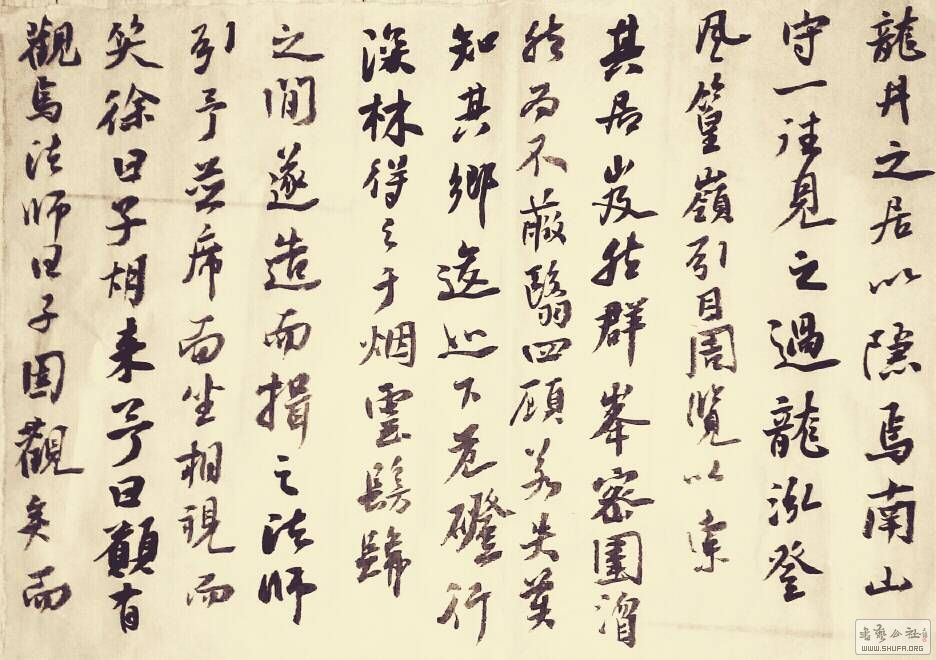 龍井之居以隱焉南山
守一往見之過龍泓登
風篁嶺引目周覽以索
其居岌然群峯密圍溜
然而不蔽翳四顧若失莫
知其鄉逡巡下危磴行
深林得之于烟雲髣髴
之間遂造而揖之法師
引予並席而坐相視而
笑徐曰子胡来予曰願有
觀焉法師曰子固觀矣而
书艺公社
WWW.SHUFA.ORG